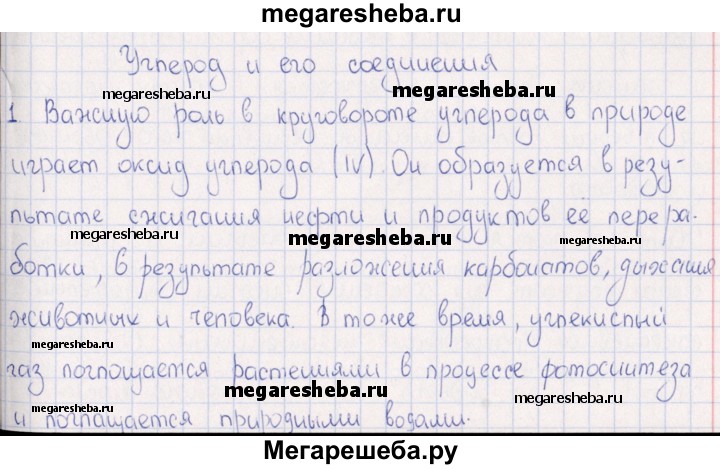 megaresheba.ru
Углерод и его соединения
megaresheba.ru
megaresheba.ru
1. Важную роль в круговороте углерода в природе
играет оксид углерода (IV). Он образуется в резу-
льтате сжигания нефти и продуктов её перера-
megaresheba.ru
megaresheba.ru
megaresheba.ru
ботки, в результате разложения карбонатов, дыхания
животных и человека. В тоже время, углекислый
megaresheba.ru
газ поглощается растениями в процессе фотосинтеза
megaresheba.ru
megaresheba.ru
megaresheba.ru
и поглащается природными водами.
Мегарешеба.ру